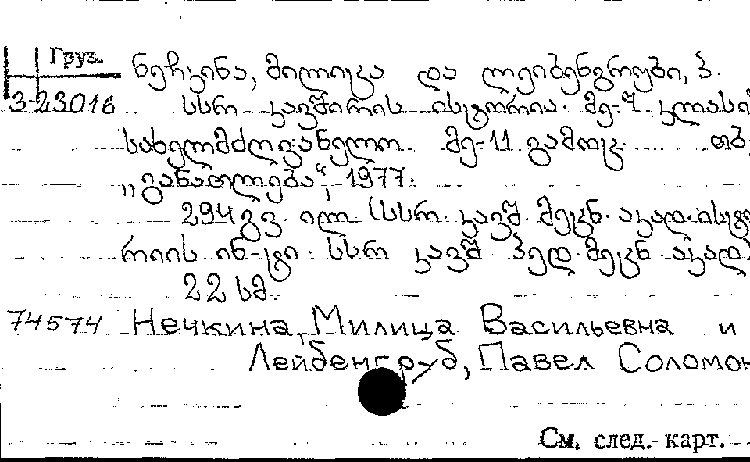 Груз.
ნეჩკინა, მილიცა და ლეიბენგრუბი, პ.
3-23016 სსრ კავშირის ისტორია. მე-7 კლასის
სახელმძღვანელო. მე-11 გამოც. თბ.,
„განათლება“, 1977.
294 გვ. ილ. (სსრ. კავშ. მეცნ. აკად. ისტო
რიის ინ-ტი. სსრ კავშ. პედ. მეცნ. აკად.
22 სმ.
74574 Нечкина, Милица Васильевна и
Лейбенгруб, Павел Соломон
См. след. карт.